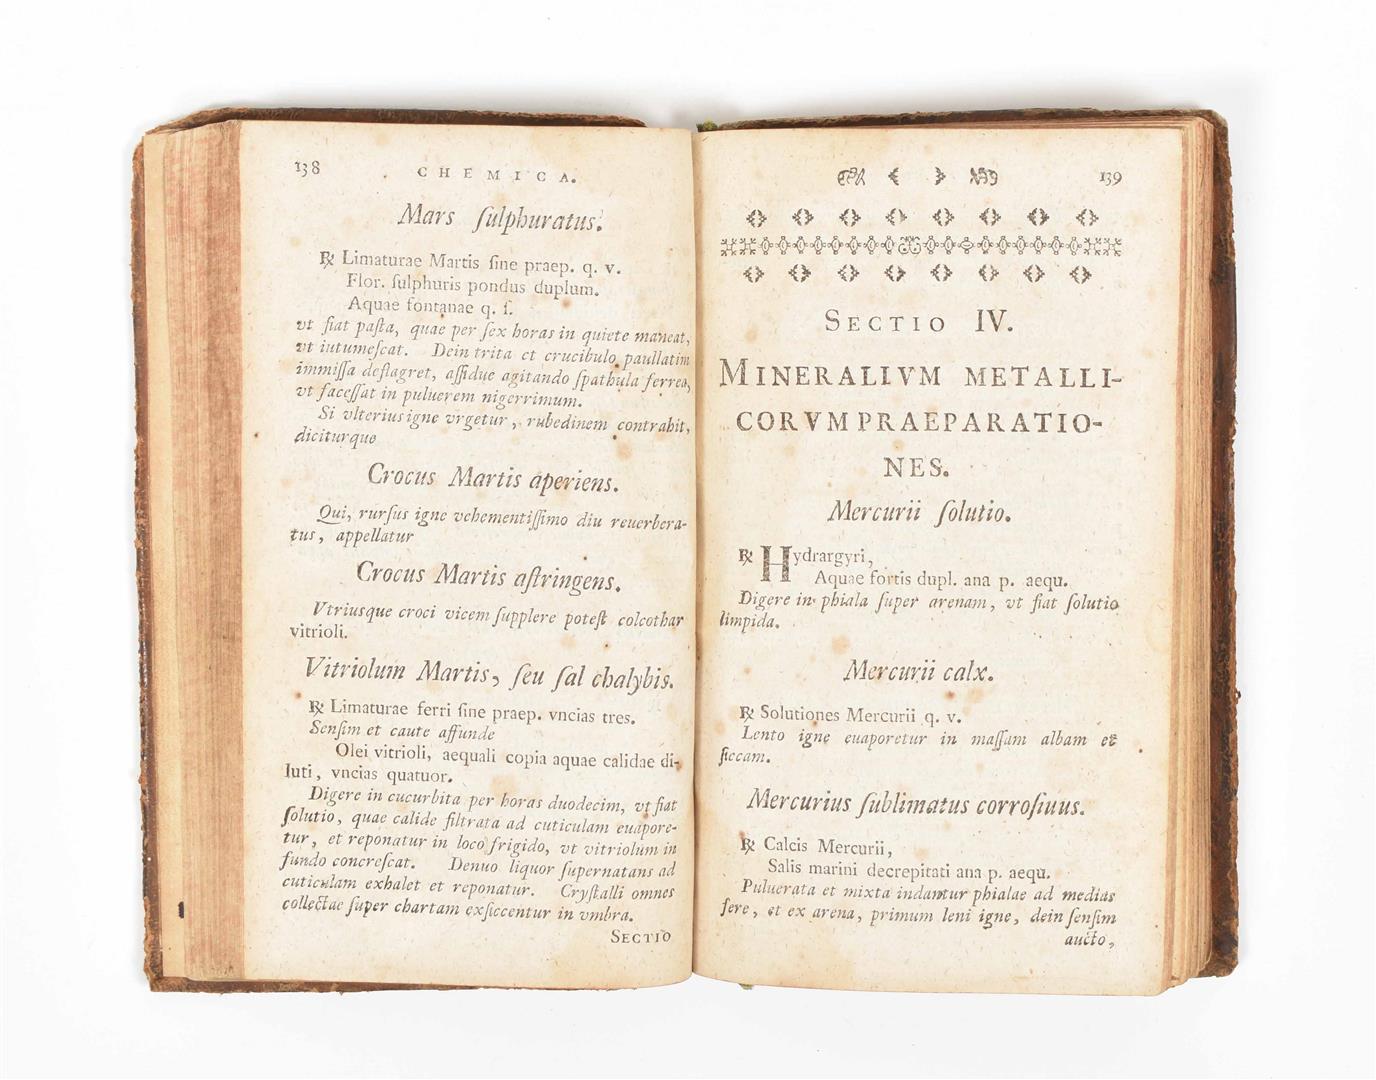 138
CHEMICA.
Mars ſulphuratus.
℞ Limaturae Martis ſine praep. q. v.
Flor. ſulphuris pondus duplum.
Aquae fontanae q. ſ.
vt fiat paſta, quae per ſex horas in quiete maneat,
vt intumeſcat. Dein trita et crucibulo paullatim
immiſſa deflagret, aſſidue agitando ſpathula ferrea,
vt faceſſat in puluerem nigerrimum.
Si vlterius igne vrgetur, rubedinem contrahit,
diciturque
Crocus Martis aperiens.
Qui, rurſus igne vehementiſſimo diu reuerbera-
tus, appellatur
Crocus Martis aſtringens.
Vtriusque croci vicem ſupplere poteſt colcothar
vitrioli.
Vitriolum Martis, ſeu ſal chalybis.
℞ Limaturae ferri ſine praep. vncias tres.
Senſim et caute affunde
Olei vitrioli, aequali copia aquae calidae di-
luti, vncias quatuor.
Digere in cucurbita per horas duodecim, vt fiat
ſolutio, quae calide filtrata ad cuticulam euapore-
tur, et reponatur in loco frigido, vt vitriolum in
fundo concreſcat. Denuo liquor ſupernatans ad
cuticulam exhalet et reponatur. Cryſtalli omnes
collectae ſuper chartam exſiccentur in vmbra.
SECTIO
139
SECTIO IV.
MINERALIVM METALLI-
CORVM PRAEPARATIO-
NES.
Mercurii ſolutio.
℞ Hydrargyri,
Aquae fortis dupl. ana p. aequ.
Digere in phiala ſuper arenam, vt fiat ſolutio
limpida.
Mercurii calx.
℞ Solutiones Mercurii q. v.
Lento igne euaporetur in maſſam albam et
ſiccam.
Mercurius ſublimatus corroſiuus.
℞ Calcis Mercurii,
Salis marini decrepitati ana p. aequ.
Puluerata et mixta indantur phialae ad medias
fere, et ex arena, primum leni igne, dein ſenſim
aucto,